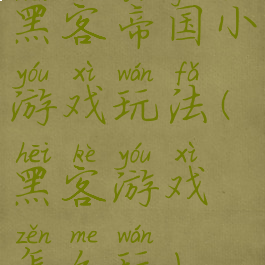 黑客帝国小
yóu xì wán fǎ
游戏玩法(
hēi kè yóu xì
黑客游戏
zěn me wán
怎么玩)